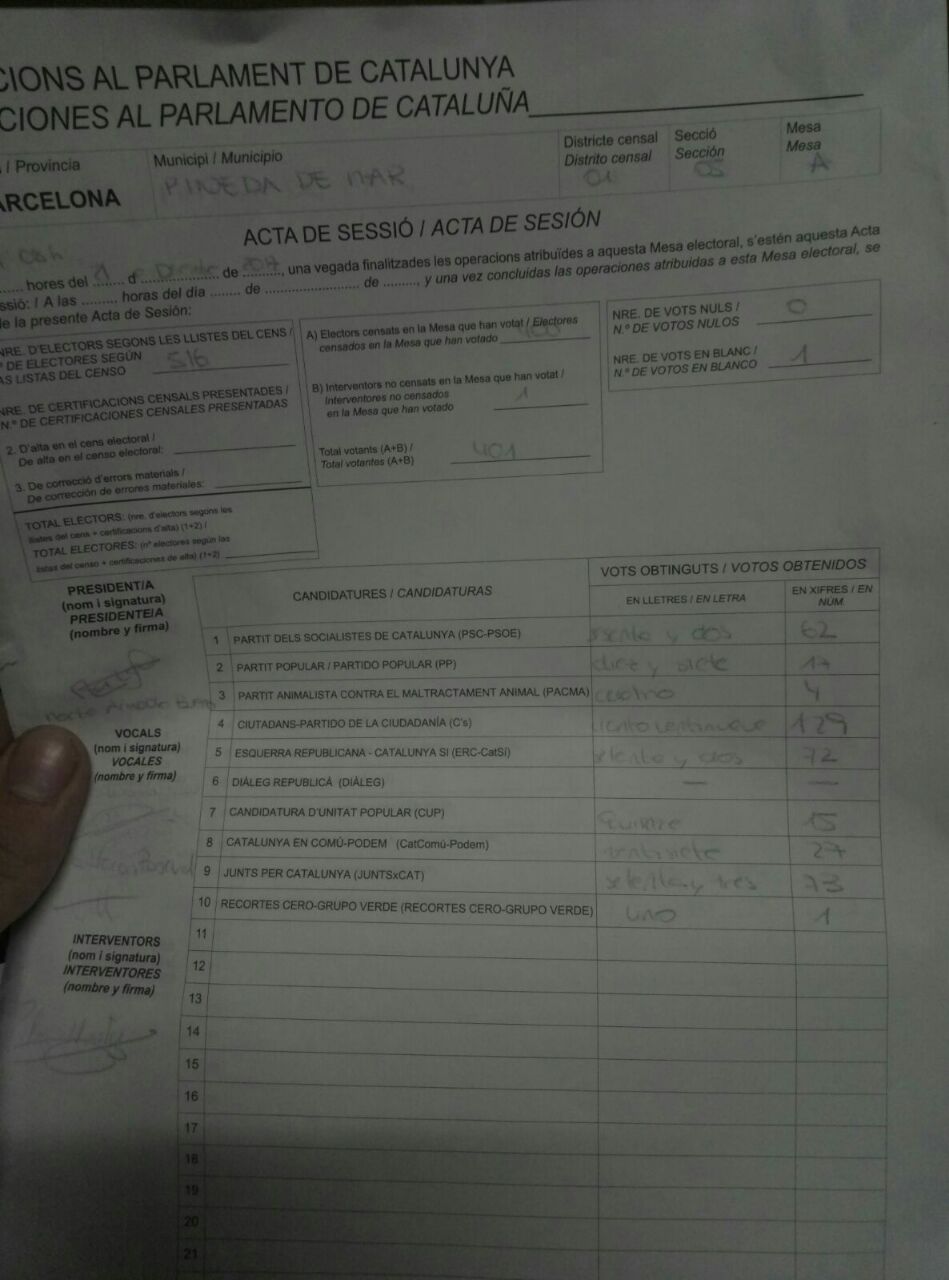 CIONS AL PARLAMENT DE CATALUNYA
CIONES AL PARLAMENTO DE CATALUÑA
/ Provincia
ARCELONA
Municipi / Municipio
PINEDA DE MAR
Districte censal
Distrito censal
01
Secció
Sección
05
Mesa
Mesa
A
ACTA DE SESSIÓ / ACTA DE SESIÓN
hores del 21 d de 2017, una vegada finalitzades les operacions atribuïdes a aquesta Mesa electoral, s'estén aquesta Acta
ssió: / A las ......... horas del día ........ de ........................ de ........., y una vez concluidas las operaciones atribuidas a esta Mesa electoral, se
de la presente Acta de Sesión:
NRE. D'ELECTORS SEGONS LES LLISTES DEL CENS /
º DE ELECTORES SEGÚN
AS LISTAS DEL CENSO 516
NRE. DE CERTIFICACIONS CENSALS PRESENTADES /
N.º DE CERTIFICACIONES CENSALES PRESENTADAS
2. D'alta en el cens electoral /
De alta en el censo electoral:
3. De correcció d'errors materials /
De corrección de errores materiales:
TOTAL ELECTORS: (nre. d'electors segons les
llistes del cens + certificacions d'alta) (1+2) /
TOTAL ELECTORES: (nº electores según las
listas del censo + certificaciones de alta) (1+2)
A) Electors censats en la Mesa que han votat / Electores
censados en la Mesa que han votado 400
B) Interventors no censats en la Mesa que han votat /
Interventores no censados
en la Mesa que han votado 1
Total votants (A+B) /
Total votantes (A+B) 401
NRE. DE VOTS NULS /
N.º DE VOTOS NULOS 0
NRE. DE VOTS EN BLANC /
N.º DE VOTOS EN BLANCO 1
PRESIDENT/A
(nom i signatura)
PRESIDENTE/A
(nombre y firma)
VOCALS
(nom i signatura)
VOCALES
(nombre y firma)
INTERVENTORS
(nom i signatura)
INTERVENTORES
(nombre y firma)
CANDIDATURES / CANDIDATURAS
VOTS OBTINGUTS / VOTOS OBTENIDOS
EN LLETRES / EN LETRA
EN XIFRES / EN NÚM.
1 PARTIT DELS SOCIALISTES DE CATALUNYA (PSC-PSOE) sesenta y dos 62
2 PARTIT POPULAR / PARTIDO POPULAR (PP) diez y siete 17
3 PARTIT ANIMALISTA CONTRA EL MALTRACTAMENT ANIMAL (PACMA) cuatro 4
4 CIUTADANS-PARTIDO DE LA CIUDADANÍA (C's) 129
5 ESQUERRA REPUBLICANA - CATALUNYA SI (ERC-CatSÍ) setenta y dos 72
6 DIÀLEG REPUBLICÀ (DIÀLEG) — —
7 CANDIDATURA D'UNITAT POPULAR (CUP) quinze 15
8 CATALUNYA EN COMÚ-PODEM (CatComú-Podem) 27
9 JUNTS PER CATALUNYA (JUNTSxCAT) setenta y tres 73
10 RECORTES CERO-GRUPO VERDE (RECORTES CERO-GRUPO VERDE) uno 1
11
12
13
14
15
16
17
18
19
20
21